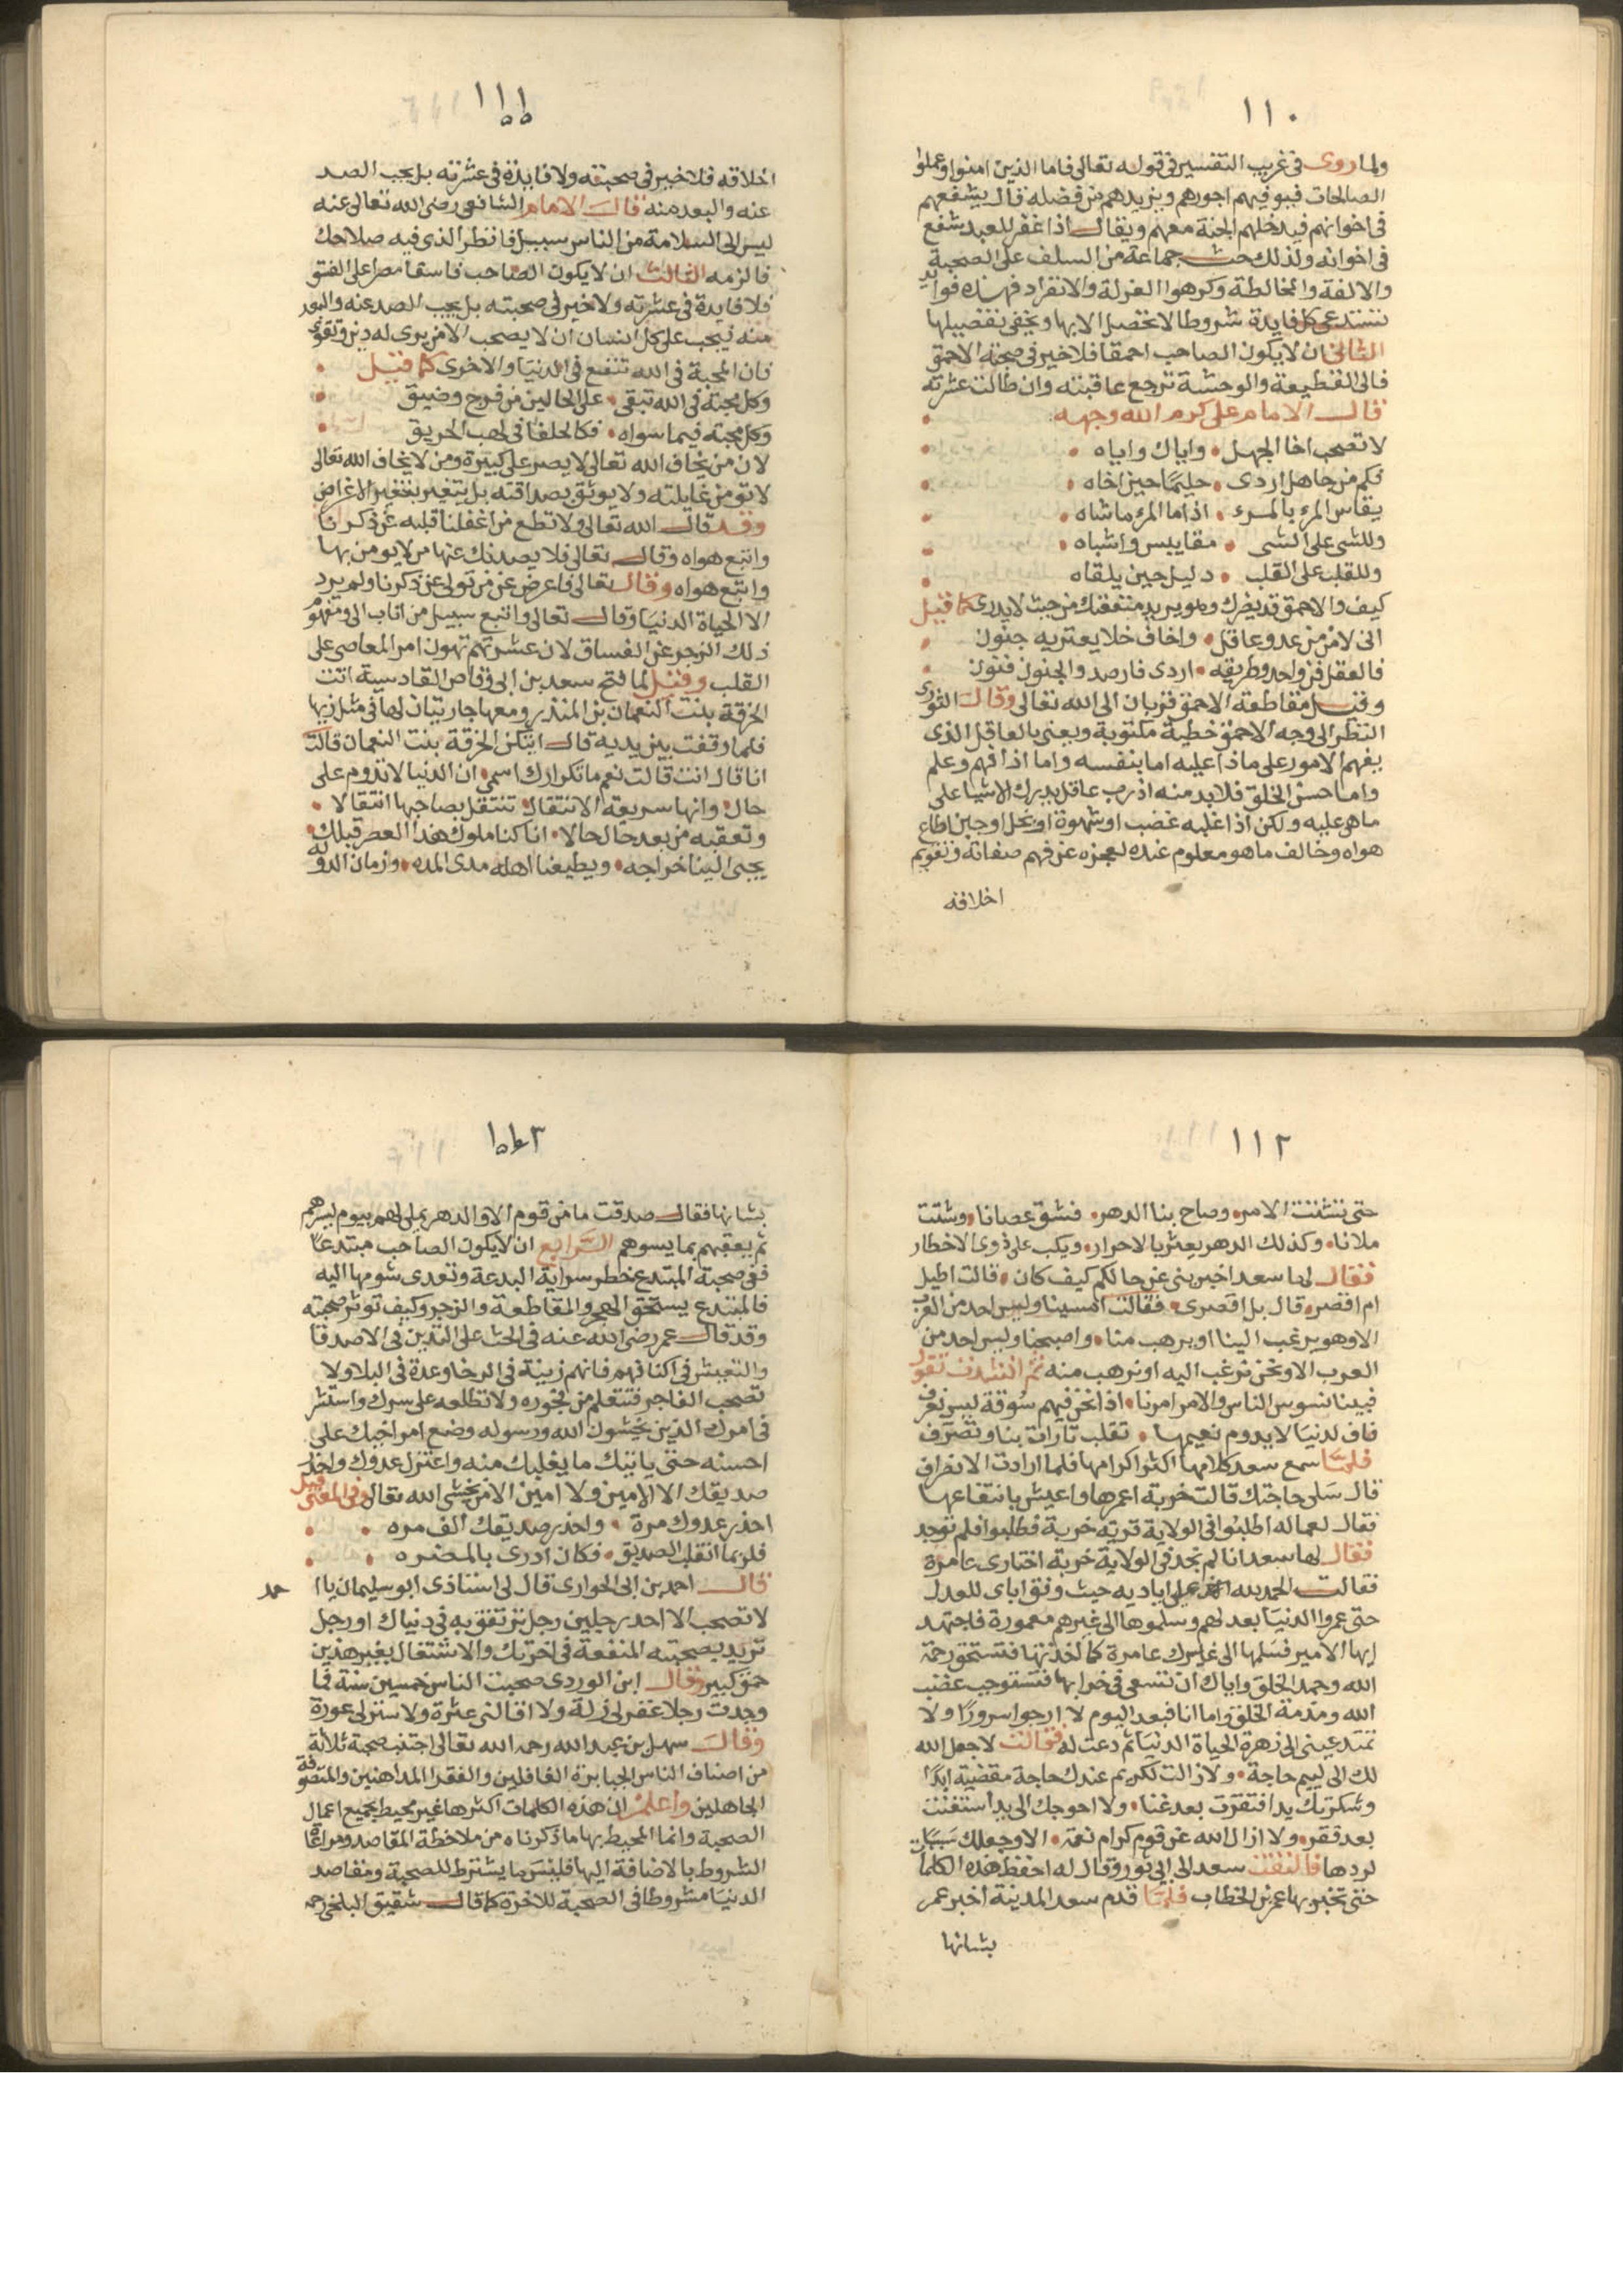 ١١٠
ولما روى في غريب التفسير في قوله تعالى فاما الذين امنوا وعملوا
الصالحات فيوفيهم اجورهم ويزيدهم من فضله قال يشفعهم
في اخوانهم فيدخلهم الجنة معهم ويقال اذا غفر للعبد شفع
في اخوانه ولذلك حث جماعة من السلف على الصحبة
والالفة والمخالطة وكرهوا العزلة والانفراد فهذه فوايد
تستدعى كل فايدة شروطا لا تحصل الا بها ويخفى تفصيلها
الثانى ان لا يكون الصاحب احمقا فلا خير في صحبة الاحمق
فالى القطيعة والوحشة ترجع عاقبته وان طالت عشرته
قال الامام على كرم الله وجهه
لا تصحب اخا الجهل واياك واياه
فكم من جاهل اردى حليمًا حين اخاه
يقاس المرء بالمرء اذا ما المرء ماشاه
وللشى على الشى مقاييس واشباه
وللقلب على القلب دليل حين يلقاه
كيف والاحمق قد يضرك وهو يريد منفعتك من حيث لا يدرى كما قيل
انى لامن من عدو عاقل واخاف خلا يعتريه جنون
فالعقل فن واحد وطريقه ادرى فارصد والجنون فنون
وقيل مقاطعة الاحمق قربان الى الله تعالى وقال الثورى
النظر الى وجه الاحمق خطية مكتوبة ويعنى بالعاقل الذى
يفهم الامور على ماذا عليه اما بنفسه واما اذا فهم وعلم
واما حسن الخلق فلا بد منه اذ رب عاقل يدرك الاشيا على
ما هي عليه ولكن اذا غلبه غضب او شهوة او بخل او جبن اطاع
هواه وخالف ما هو معلوم عنده لعجزه عن فهم صفاته وتقويم
اخلاقه
١١١
اخلاقه فلا خير في صحبته ولا فايدة في عشرته بل يجب الصد
عنه والبعد منه قال الامام الشافعى رضى الله تعالى عنه
ليس الى السلامة من الناس سبيل فانظر الذى فيه صلاحك
فالزمه الثالث ان لا يكون الصاحب فاسقا مصرا على الفسق
فلا فايدة في عشرته ولا خير في صحبته بل يجب الصد عنه والبعد
منه فيجب على كل انسان ان لا يصحب الا من يرى له دين وتقوى
فان المحبة في الله تنفع في الدنيا والاخرى كما قيل
وكل محبة في الله تبقى على الحالين من فرج وضيق
وكل محبة فيما سواه فكالحلفا في لهب الحريق
لان من يخاف الله تعالى لا يصر على كبيرة ومن لا يخاف الله تعالى
لا تومن غايلته ولا يوثق بصداقته بل يتغير بتغير الاغراض
وقد قال الله تعالى ولا تطع من اغفلنا قلبه عن ذكرنا
واتبع هواه وقال تعالى فلا يصدنك عنها من لا يومن بها
واتبع هواه وقال تعالى فاعرض عن من تولى عن ذكرنا ولم يرد
الا الحياة الدنيا وقال تعالى واتبع سبيل من اناب الى ومفهوم
ذلك الزجر عن الفساق لان عشرتهم تهون امر المعاصى على
القلب وقيل لما فتح سعد بن ابى وقاص القادسية اتت
الخرقة بنت النعمان بن المنذر ومعها جاريتان لها في مثل زيها
فلما وقفت بين يديه قال ايتكن الخرقة بنت النعمان قالت
انا قال انت قالت نعم ما تكرارك اسمى ان الدنيا لا تدوم على
حال وانها سريعة الانتقال تنتقل بصاحبها انتقالا
وتعقبه من بعد حال حالا انا كنا ملوك هذا العصر قبلك
يجبى الينا خراجه ويطيعنا اهله مدى المده وزمان الدوله
١١٢
حتى تشتت الامر وصاح بنا الدهر فشق عصانا وشتت
ملانا وكذلك الدهر يعثر بالاحرار ويكب على ذوى الاخطار
فقال لها سعد اخبرينى عن حالكم كيف كان قالت اطيل
ام اقصر قال بل اقصرى فقالت امسينا وليس احد من العرب
الا وهو يرغب الينا او يرهب منا واصبحنا وليس احد من
العرب الا ونحن نرغب اليه او نرهب منه ثم انشدت تقول
فبينا نسوس الناس والامر امرنا اذا نحن فيهم سوقة ليس نعرف
فاف لدنيا لا يدوم نعيمها تقلب تارات بنا وتصرف
فلما سمع سعد كلامها اكثر اكرامها فلما ارادت الانصراف
قال سلى حاجتك قالت خربة اعمرها واعيش بانتفاعها
فقال لعماله اطلبوا في الولاية قرية خربة فطلبوا فلم توجد
فقال لها سعد انا لم نجد في الولاية خربة اختارى عامرة
فقالت الحمد لله على اياديه حيث وفق اباى للعدل
حتى عمروا الدنيا بعدلهم وسلموها الى غيرهم معمورة فاجتهد
ايها الامير فسلمها الى غيرك عامرة كما اخذتها فتستحق رحمة
الله وحمد الخلق واياك ان تسعى في خرابها فتستوجب غضب
الله ومذمة الخلق واما انا فبعد اليوم لا ارجو اسرورًا ولا
تمتد عينى الى زهرة الحياة الدنيا ثم دعت له فقالت لا جعل الله
لك الى لييم حاجة ولا زالت لكريم عندك حاجة مقضية ابدًا
وشكرتك يد افتقرت بعد غنا ولا احوجك الى يد استغنت
بعد فقر ولا ازال الله عن قوم كرام نعمة الا وجعلك سببًا
لردها فالتفت سعد الى ابى ثور وقال له احفظ هذه الكلمات
حتى تخبر بها عمر بن الخطاب فلما قدم سعد المدينة اخبر عمر
بشانها
١١٣
بشانها فقال صدقت ما من قوم الا والدهر يملى لهم بيوم يسرهم
ثم يعقبهم بما يسوهم الرابع ان لا يكون الصاحب مبتدعًا
ففى صحبة المبتدع خطر سراية البدعة وتعدى شومها اليه
فالمبتدع يستحق الهجر والمقاطعة والزجر وكيف توثر صحبته
وقد قال عمر رضى الله عنه في الحث على التدين في الاصدقا
والتعيش في اكنافهم فانهم زينة في الرخا وعدة في البلا ولا
تصحب الفاجر فتتعلم من فجوره ولا تطلعه على سرك واستشر
في امرك الذين يخشون الله ورسوله وضع امر اخيك على
احسنه حتى ياتيك ما يغلبك منه واعتزل عدوك واحذر
صديقك الا الامين ولا امين الا من يخشى الله تعالى وفى المعنى قيل
احذر عدوك مرة واحذر صديقك الف مره
فلربما انقلب الصديق فكان ادرى بالمضره
قال احمد بن ابى الحوارى قال لى استاذى ابو سليمان يا ا
حمد
لا تصحب الا احد رجلين رجل ترتفق به في دنياك او رجل
تريد بصحبته المنفعة في اخرتك والاشتغال بغير هذين
حمق كبير وقال ابن الوردى صحبت الناس خمسين سنة فما
وجدت رجلا غفر لى زلة ولا اقالنى عثرة ولا ستر لى عورة
وقال سهل بن عبد الله رحمه الله تعالى اجتنب صحبة ثلاثة
من اصناف الناس الجبابرة الغافلين والفقرا المداهنين والمتصوفة
الجاهلين واعلم ان هذه الكلمات اكثرها غير محيط بجميع اعمال
الصحبة وانما المحيط بها ما ذكرناه من ملاحظة المقاصد ومراعاة
الشروط بالاضافة اليها فليس ما يشترط للصحبة ومقاصد
الدنيا مشروطا في الصحبة للاخرة كما قال شقيق البلخى رحمه